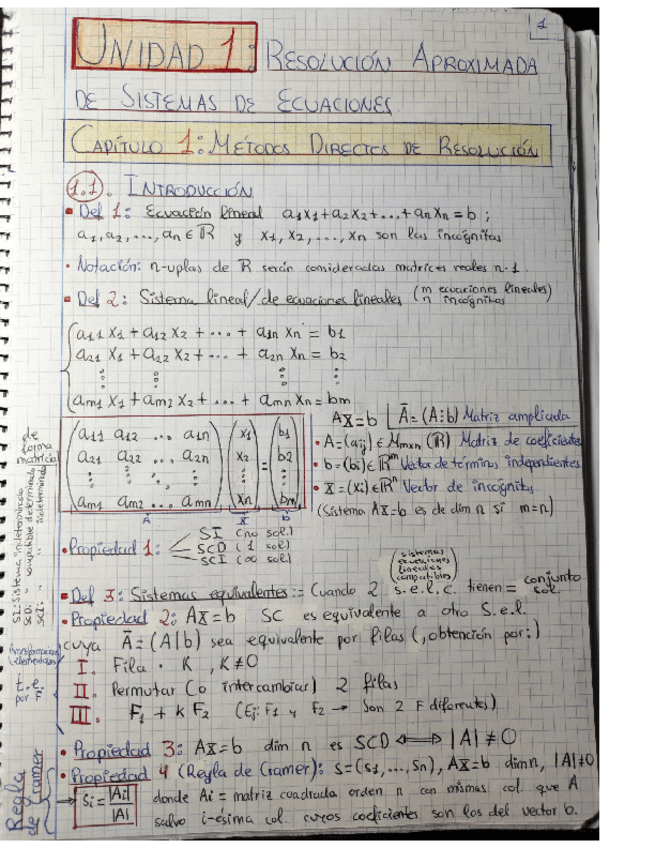 1
UNIDAD 1: RESOLUCIÓN APROXIMADA
DE SISTEMAS DE ECUACIONES.
CAPÍTULO 1: MÉTODOS DIRECTOS DE RESOLUCIÓN
1.1. INTRODUCCIÓN
▪ Def 1: Ecuación lineal a₁x₁+a₂x₂+...+aₙxₙ = b ;
a₁, a₂, ..., aₙ ∈ ℝ y x₁, x₂, ..., xₙ son las incógnitas
• Notación: n-uplas de ℝ serán consideradas matrices reales n·1.
▪ Def 2: Sistema lineal/de ecuaciones lineales (m ecuaciones lineales
n incógnitas)
a₁₁ x₁ + a₁₂ x₂ + ... + a₁ₙ xₙ = b₁
a₂₁ x₁ + a₂₂ x₂ + ... + a₂ₙ xₙ = b₂
⋮ ⋮ ⋮ ⋮
aₘ₁ x₁ + aₘ₂ x₂ + ... + aₘₙ xₙ = bₘ
de forma matricial
(a₁₁ a₁₂ ... a₁ₙ) (x₁) (b₁)
(a₂₁ a₂₂ ... a₂ₙ) (x₂) = (b₂)
(⋮ ⋮ ⋱ ⋮) (⋮) (⋮)
(aₘ₁ aₘ₂ ... aₘₙ) (xₙ) (bₘ)
A x̄ b̄
Ax̄=b | Ā=(A⋮b) Matriz ampliada
• A=(aᵢⱼ) ∈ Mₘₓₙ (ℝ) Matriz de coeficientes
• b=(bᵢ)∈ℝᵐ Vector de términos independientes
• x̄=(xᵢ)∈ℝⁿ Vector de incógnitas
(Sistema Ax̄=b es de dim n si m=n)
SI: Sistema indeterminado
SCD: " compatible determinado
SCI: " " indeterminado
• Propiedad 1:
SI (no sol.)
SCD (1 sol.)
SCI (∞ sol.)
(sistemas ecuaciones lineales compatibles)
▪ Def 3: Sistemas equivalentes := Cuando 2 s.e.l.c. tienen = conjunto sol.
• Propiedad 2: Ax̄=b SC es equivalente a otro s.e.l.
cuya Ā=(A|b) sea equivalente por filas (, obtención por:)
transformaciones elementales
t.e. por F
I. Fila · K , K≠0
II. Permutar (o intercambiar) 2 filas
III. F₁ + k F₂ (Ej: F₁ y F₂ → Son 2 F diferentes)
• Propiedad 3: Ax̄=b dim n es SCD ⟺ |A| ≠ 0
• Propiedad 4 (Regla de Cramer): s=(s₁,...,sₙ), Ax̄=b dim n, |A|≠0
Regla de Cramer
→ sᵢ = |Aᵢ| / |A| donde Aᵢ = matriz cuadrada orden n con mismas col. que A
salvo i-ésima col. cuyos coeficientes son los del vector b.